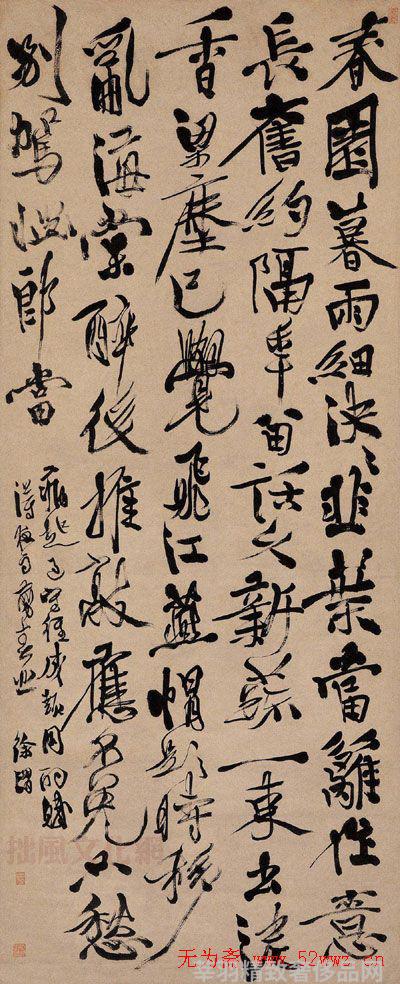 春園暮雨細泱泱韭葉當籬作意
長舊約隔年留話久新蔬一束出泥
香梁塵已覺飛江燕帽影時移
亂海棠醉後推敲應不免只愁
別駕惱郎當
得夜雨剪春韭 徐渭
拙風文化網
无为斋 www.52wwz.cn
精致奢侈品网